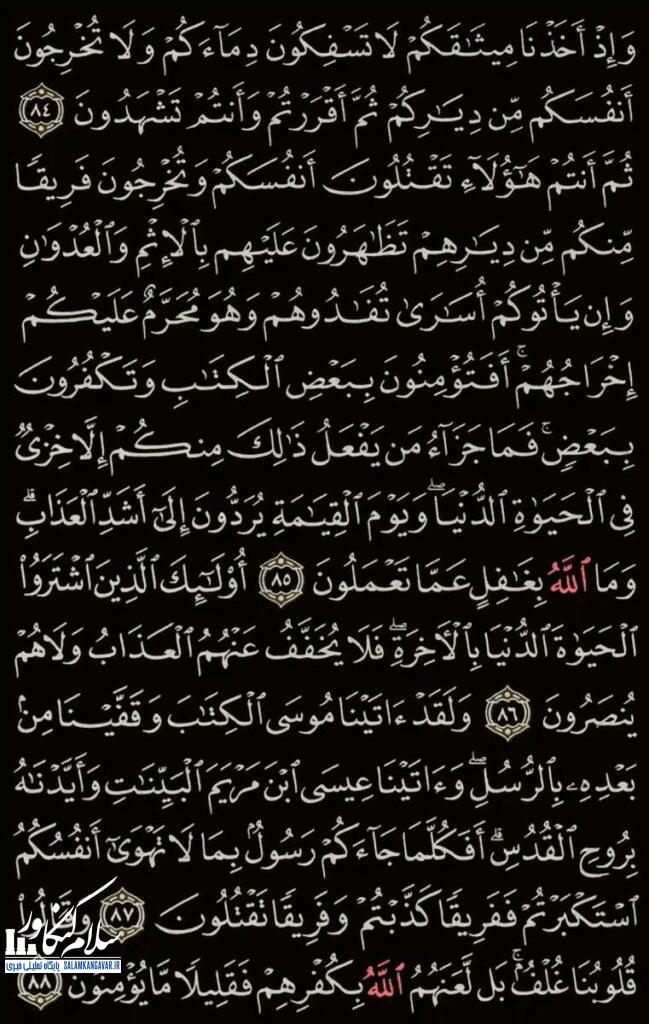 وَإِذْ أَخَذْنَا مِيثَـٰقَكُمْ لَا تَسْفِكُونَ دِمَآءَكُمْ وَلَا تُخْرِجُونَ
أَنفُسَكُم مِّن دِيَـٰرِكُمْ ثُمَّ أَقْرَرْتُمْ وَأَنتُمْ تَشْهَدُونَ ٨٤
ثُمَّ أَنتُمْ هَـٰٓؤُلَآءِ تَقْتُلُونَ أَنفُسَكُمْ وَتُخْرِجُونَ فَرِيقًا
مِّنكُم مِّن دِيَـٰرِهِمْ تَظَـٰهَرُونَ عَلَيْهِم بِٱلْإِثْمِ وَٱلْعُدْوَٰنِ
وَإِن يَأْتُوكُمْ أُسَـٰرَىٰ تُفَـٰدُوهُمْ وَهُوَ مُحَرَّمٌ عَلَيْكُمْ
إِخْرَاجُهُمْ ۚ أَفَتُؤْمِنُونَ بِبَعْضِ ٱلْكِتَـٰبِ وَتَكْفُرُونَ
بِبَعْضٍ ۚ فَمَا جَزَآءُ مَن يَفْعَلُ ذَٰلِكَ مِنكُمْ إِلَّا خِزْىٌ
فِى ٱلْحَيَوٰةِ ٱلدُّنْيَا ۖ وَيَوْمَ ٱلْقِيَـٰمَةِ يُرَدُّونَ إِلَىٰٓ أَشَدِّ ٱلْعَذَابِ ۗ
وَمَا ٱللَّهُ بِغَـٰفِلٍ عَمَّا تَعْمَلُونَ ٨٥ أُو۟لَـٰٓئِكَ ٱلَّذِينَ ٱشْتَرَوُا۟
ٱلْحَيَوٰةَ ٱلدُّنْيَا بِٱلْـَٔاخِرَةِ ۖ فَلَا يُخَفَّفُ عَنْهُمُ ٱلْعَذَابُ وَلَا هُمْ
يُنصَرُونَ ٨٦ وَلَقَدْ ءَاتَيْنَا مُوسَى ٱلْكِتَـٰبَ وَقَفَّيْنَا مِنۢ
بَعْدِهِۦ بِٱلرُّسُلِ ۖ وَءَاتَيْنَا عِيسَى ٱبْنَ مَرْيَمَ ٱلْبَيِّنَـٰتِ وَأَيَّدْنَـٰهُ
بِرُوحِ ٱلْقُدُسِ ۗ أَفَكُلَّمَا جَآءَكُمْ رَسُولٌۢ بِمَا لَا تَهْوَىٰٓ أَنفُسُكُمُ
ٱسْتَكْبَرْتُمْ فَفَرِيقًا كَذَّبْتُمْ وَفَرِيقًا تَقْتُلُونَ ٨٧ وَقَالُوا۟
قُلُوبُنَا غُلْفٌۢ ۚ بَل لَّعَنَهُمُ ٱللَّهُ بِكُفْرِهِمْ فَقَلِيلًا مَّا يُؤْمِنُونَ ٨٨
سلام کنگاور
پایگاه تحلیلی خبری SALAMKANGAVAR.IR